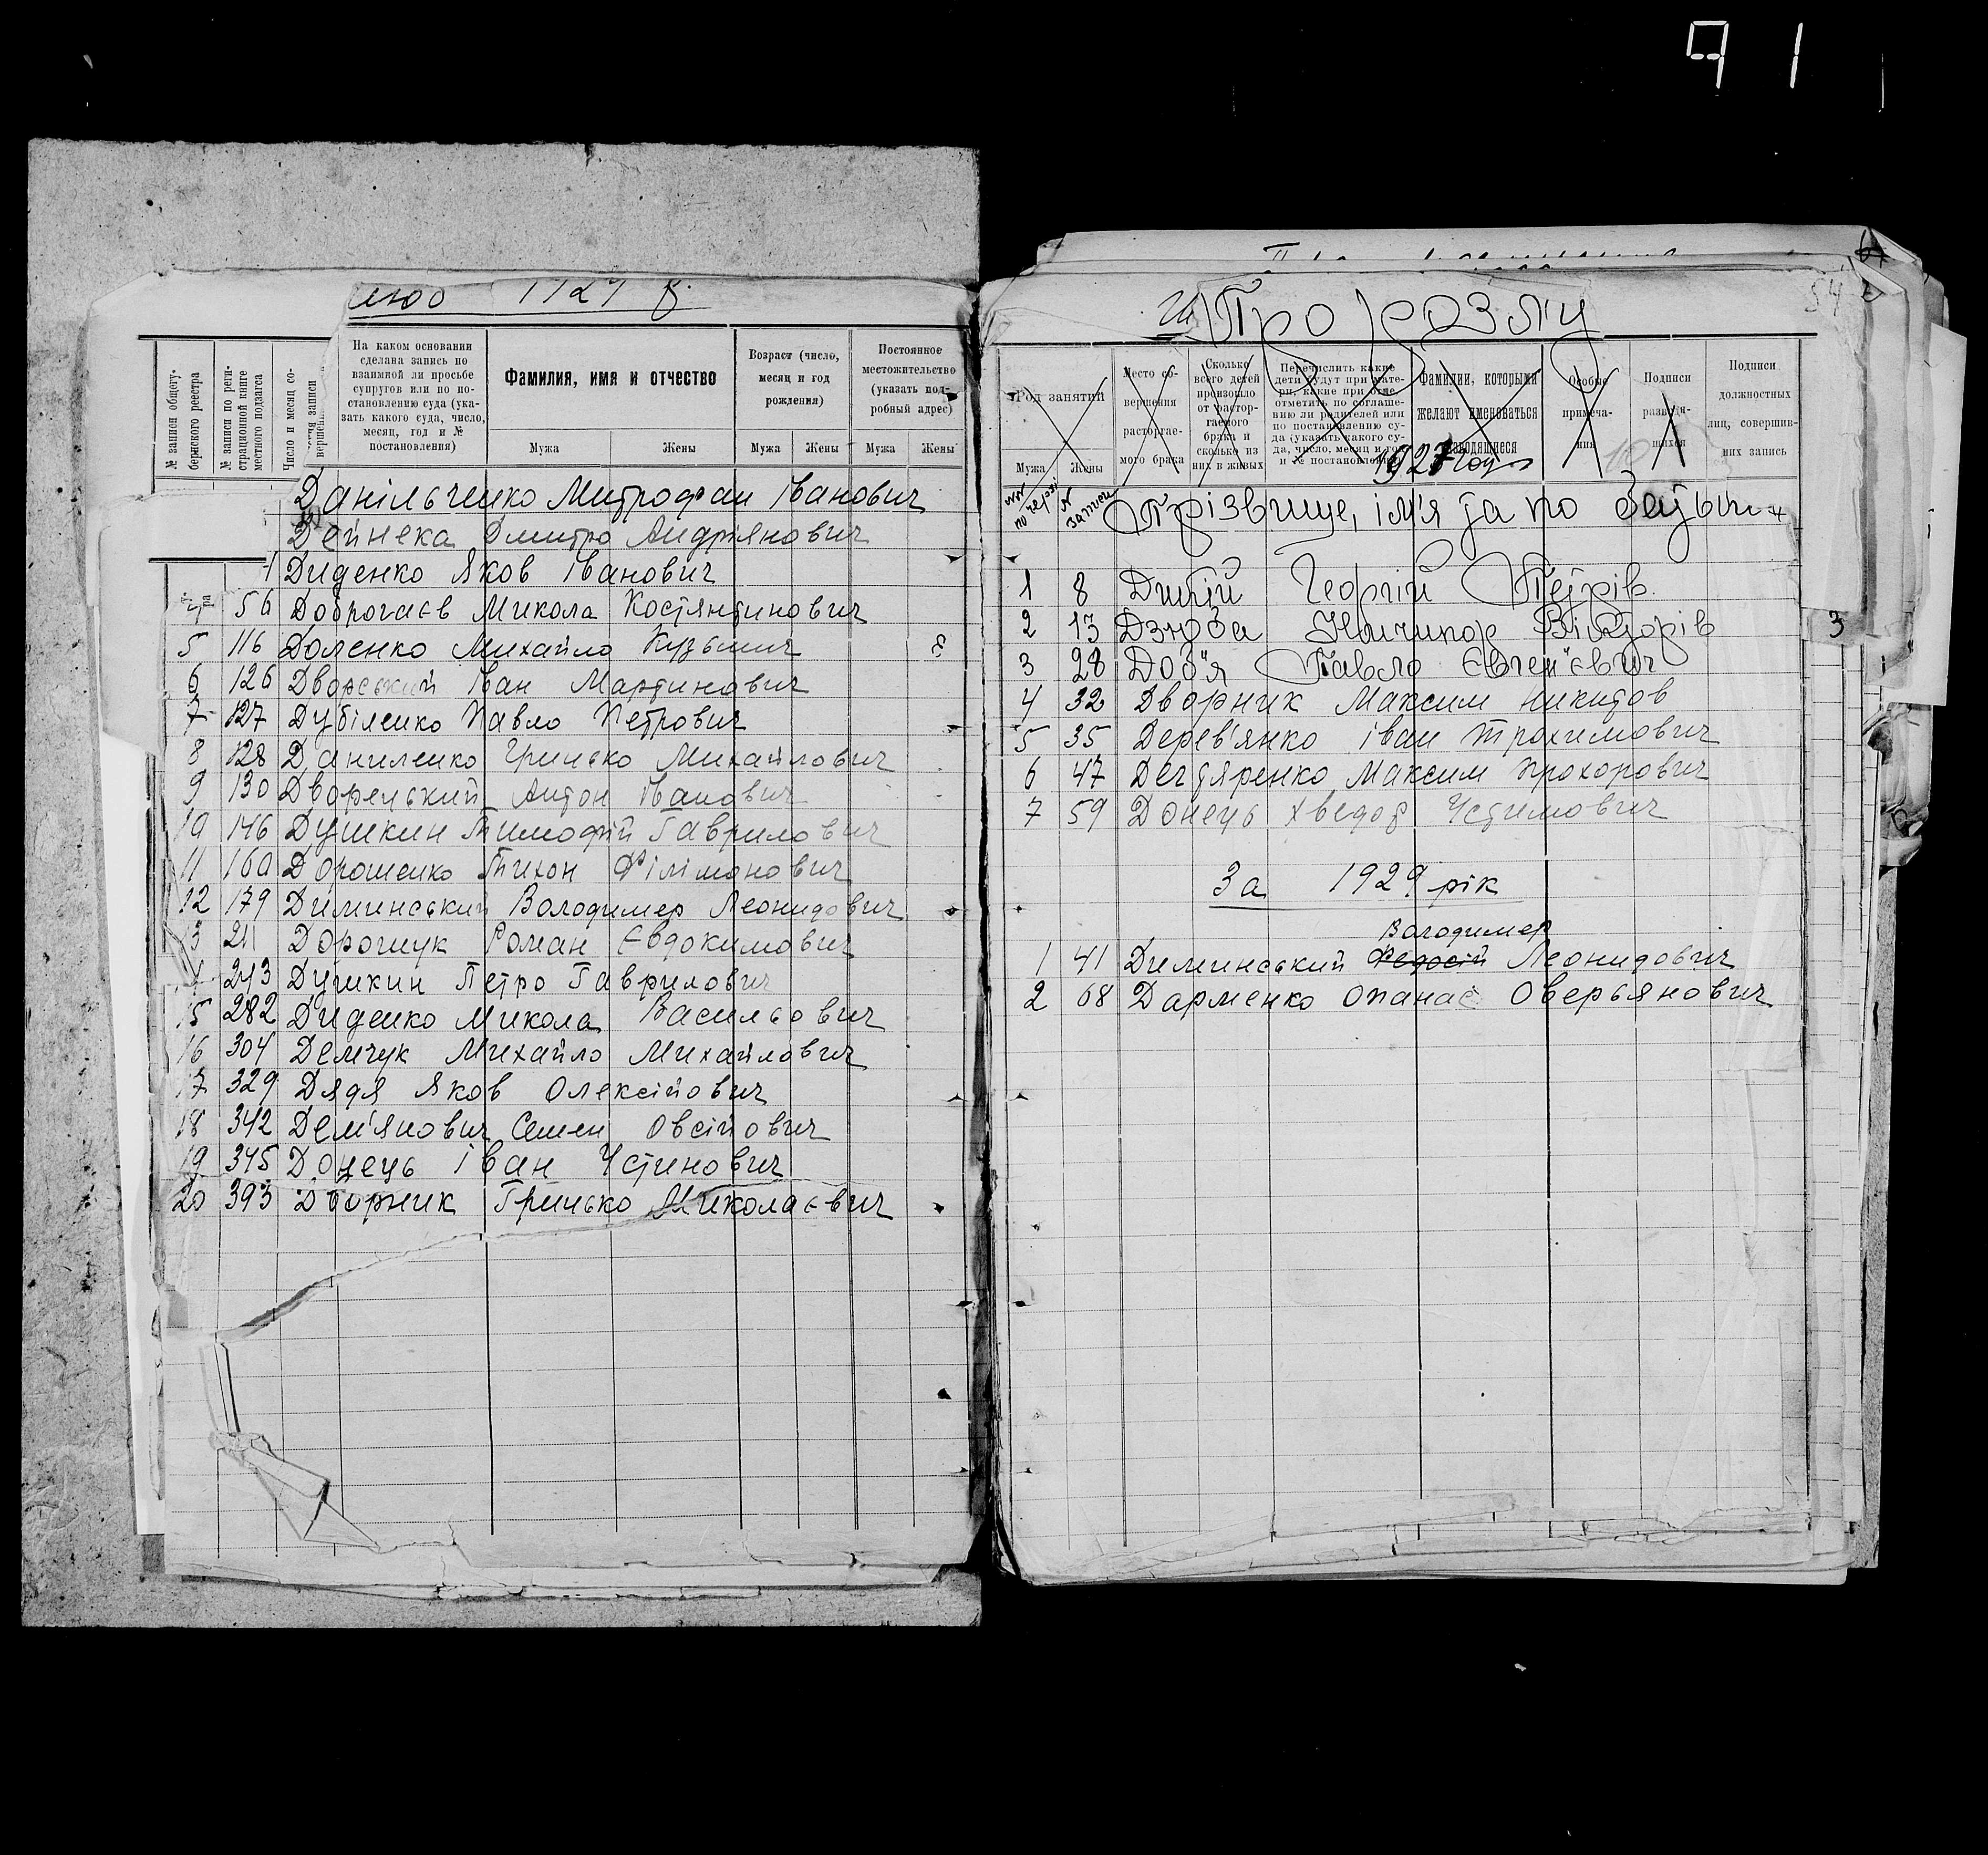 91
шлюб 1927 р.
№ записи общегу-
бернского реестра
№ записи по реги-
страционной книге
местного подзагса
Число и месяц со-
записи
На каком основании
сделана запись по
взаимной ли просьбе
супругов или по по-
становлению суда (ука-
зать какого суда, число,
месяц, год и №
постановления)
Фамилия, имя и отчество
Мужа Жены
Возраст (число,
месяц и год
рождения)
Мужа Жены
Постоянное
местожительство
(указать под-
робный адрес)
Мужа Жены
Данільченко Митрофан Іванович
Дейнека Дмитро Андріянович
Диденко Яков Іванович
4 56 Доброгаєв Микола Костянтинович
5 116 Доленко Михайло Кузьмич
6 126 Дворський Іван Мартинович
7 127 Дубіленко Павло Петрович
8 128 Даниленко Грицько Михайлович
9 130 Дворецький Антон Іванович
10 146 Душкин Тимофій Гаврилович
11 160 Дорошенко Тихон Філімонович
12 179 Диминський Володимер Леонидович
13 211 Дорошук Роман Євдокимович
243 Душкин Петро Гаврилович
15 282 Диденко Микола Васильович
16 304 Демчук Михайло Михайлович
17 329 Дядя Яков Олексійович
18 342 Дем'янович Семен Овсійович
19 345 Донець Іван Устинович
20 393 Дворник Грицько Миколаєвич
54
Про розлу
Род занятий
Мужа Жены
Место со-
вершения
расторгае-
мого брака
Сколько
всего детей
произошло
от растор-
гаемого
брака и
сколько из
них в живых
Перечислить какие
дети будут при мате-
ри, какие при отце,
отметить по соглаше-
нию ли родителей или
по постановлению су-
да (указать какого су-
да, число, месяц и год
и № постановления)
Фамилии, которыми
желают именоваться
разводящиеся
Особые
примеча-
ния
Подписи
разводя-
щихся
Подписи
должностных
лиц, совершив-
ших запись
1927
№ по черзі № запису Прізвище, ім'я та по
1 8 Дикій Георгій Петрів
2 13 Дзюба Ничипор Вікторів
3 28 Доб'я Павло Євген'євич
3
4 32 Дворник Максим Никитов
5 35 Дерев'янко Іван Трохимович
6 47 Дегтяренко Максим Прохорович
7 59 Донець Хведот Устимович
За 1929 рік
Володимер
1 41 Диминський Федосій Леонидович
2 68 Дарменко Опанас Оверьянович